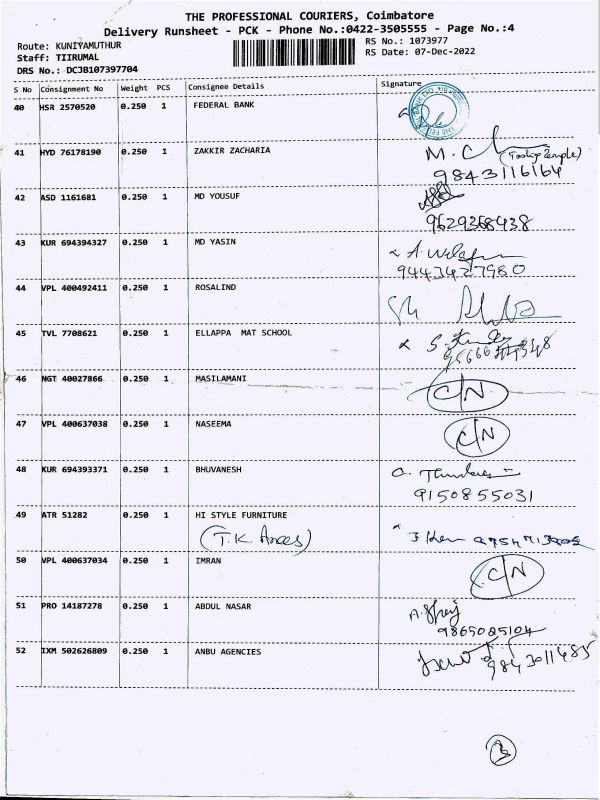 THE PROFESSIONAL COURIERS, Coimbatore
Delivery Runsheet - PCK - Phone No.:0422-3505555 - Page No.:4
Route: KUNIYAMUTHUR RS No.: 1073977
Staff: TIIRUMAL RS Date: 07-Dec-2022
DRS No.: DCJB107397704
S No Consignment No Weight PCS Consignee Details Signature
40 HSR 2570520 0.250 1 FEDERAL BANK
41 HYD 76178190 0.250 1 ZAKKIR ZACHARIA M.C
9843116164
42 ASD 1161681 0.250 1 MD YOUSUF
9629368438
43 KUR 694394327 0.250 1 MD YASIN
9443427980
44 VPL 400492411 0.250 1 ROSALIND
45 TVL 7708621 0.250 1 ELLAPPA MAT SCHOOL
46 NGT 40027866 0.250 1 MASILAMANI C/N
47 VPL 400637038 0.250 1 NASEEMA C/N
48 KUR 694393371 0.250 1 BHUVANESH
9150855031
49 ATR 51282 0.250 1 HI STYLE FURNITURE
50 VPL 400637034 0.250 1 IMRAN C/N
51 PRO 14187278 0.250 1 ABDUL NASAR
9865085104
52 IXM 502626809 0.250 1 ANBU AGENCIES
9843011485
3